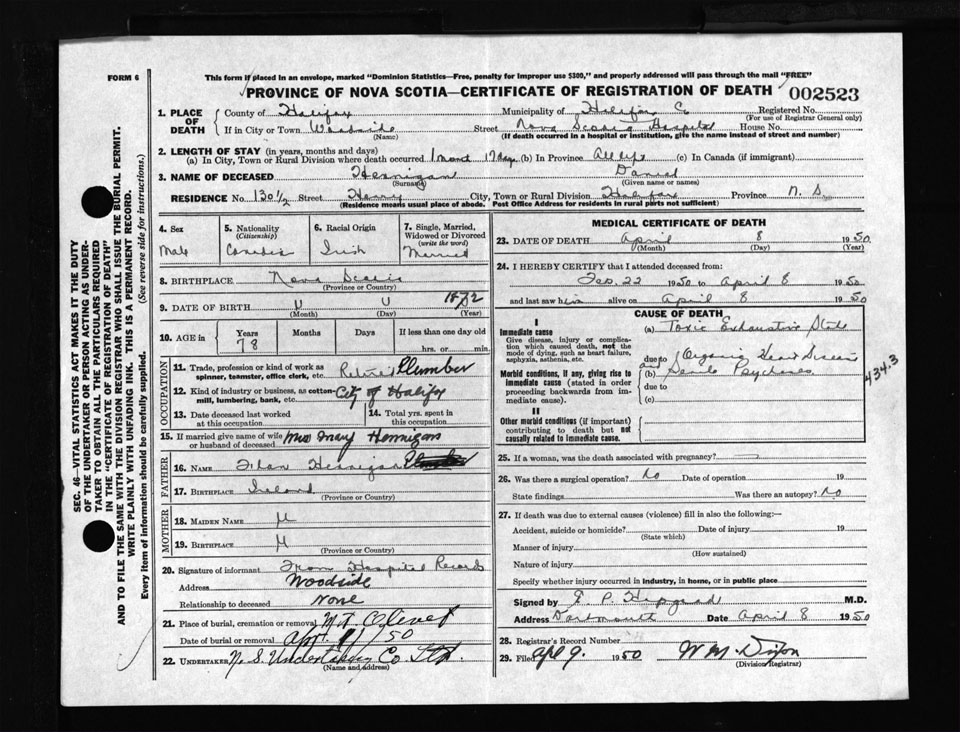 FORM 6
This form if placed in an envelope, marked "Dominion Statistics—Free, penalty for improper use $300," and properly addressed will pass through the mail "FREE"
PROVINCE OF NOVA SCOTIA—CERTIFICATE OF REGISTRATION OF DEATH 002523
1. PLACE OF DEATH
County of Halifax Municipality of Halifax C Registered No.
(For use of Registrar General only)
If in City or Town Woodside Street Nova Scotia Hospital House No.
(Name) (If death occurred in a hospital or institution, give its name instead of street and number)
2. LENGTH OF STAY (in years, months and days)
(a) In City, Town or Rural Division where death occurred 1 Month 17 days (b) In Province All life (c) In Canada (if immigrant)
3. NAME OF DECEASED Hennigan Daniel
(Surname) (Given name or names)
RESIDENCE No. 130 1/2 Street Henry City, Town or Rural Division Halifax Province N. S.
(Residence means usual place of abode. Post Office Address for residents in rural parts not sufficient)
4. Sex
Male
5. Nationality
(Citizenship)
Canadian
6. Racial Origin
Irish
7. Single, Married, Widowed or Divorced
(write the word)
Married
8. BIRTHPLACE Nova Scotia
(Province or Country)
9. DATE OF BIRTH U U 1872
(Month) (Day) (Year)
10. AGE in Years Months Days If less than one day old
78 hrs. or min.
OCCUPATION
11. Trade, profession or kind of work as spinner, teamster, office clerk, etc. Retired Plumber
12. Kind of industry or business, as cotton-mill, lumbering, bank, etc. City of Halifax
13. Date deceased last worked at this occupation
14. Total yrs. spent in this occupation
15. If married give name of wife or husband of deceased Mrs Mary Hennigan
FATHER
16. NAME Hennigan
17. BIRTHPLACE Ireland
(Province or Country)
MOTHER
18. MAIDEN NAME U
19. BIRTHPLACE U
(Province or Country)
20. Signature of informant From Hospital Records
Address Woodside
Relationship to deceased None
21. Place of burial, cremation or removal Mt. Olivet
Date of burial or removal Apr. 11/50
22. UNDERTAKER N. S. Undertaking Co. Ltd.
(Name and address)
MEDICAL CERTIFICATE OF DEATH
23. DATE OF DEATH April 8 1950
(Month) (Day) (Year)
24. I HEREBY CERTIFY that I attended deceased from:
Feb. 22 1950 to April 8 1950
and last saw him alive on April 8 1950
CAUSE OF DEATH
I
Immediate cause
Give disease, injury or complication which caused death, not the mode of dying, such as heart failure, asphyxia, asthenia, etc.
(a) Toxic Exhaustive State
due to
Morbid conditions, if any, giving rise to immediate cause (stated in order proceeding backwards from immediate cause).
(b) Organic Heart Disease and Senile Psychosis
434.3
due to
(c)
II
Other morbid conditions (if important) contributing to death but not causally related to immediate cause.
25. If a woman, was the death associated with pregnancy?
26. Was there a surgical operation? No Date of operation 19
State findings Was there an autopsy? No
27. If death was due to external causes (violence) fill in also the following:—
Accident, suicide or homicide? Date of injury 19
(State which)
Manner of injury
(How sustained)
Nature of injury
Specify whether injury occurred in industry, in home, or in public place
Signed by M.D.
Address Dartmouth Date April 8 1950
28. Registrar's Record Number
29. Filed Apl 9. 1950 W M. Dixon
(Division Registrar)
SEC. 46—VITAL STATISTICS ACT MAKES IT THE DUTY
OF THE UNDERTAKER OR PERSON ACTING AS UNDERTAKER TO OBTAIN ALL THE PARTICULARS REQUIRED
IN THE "CERTIFICATE OF REGISTRATION OF DEATH"
AND TO FILE THE SAME WITH THE DIVISION REGISTRAR WHO SHALL ISSUE THE BURIAL PERMIT.
WRITE PLAINLY WITH UNFADING INK. THIS IS A PERMANENT RECORD.
Every item of information should be carefully supplied. (See reverse side for instructions.)